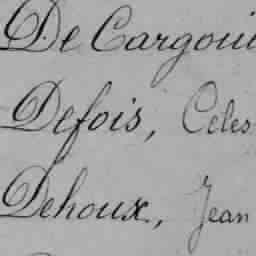 De Cargoui
Defois, Celes
Dehoux, Jean